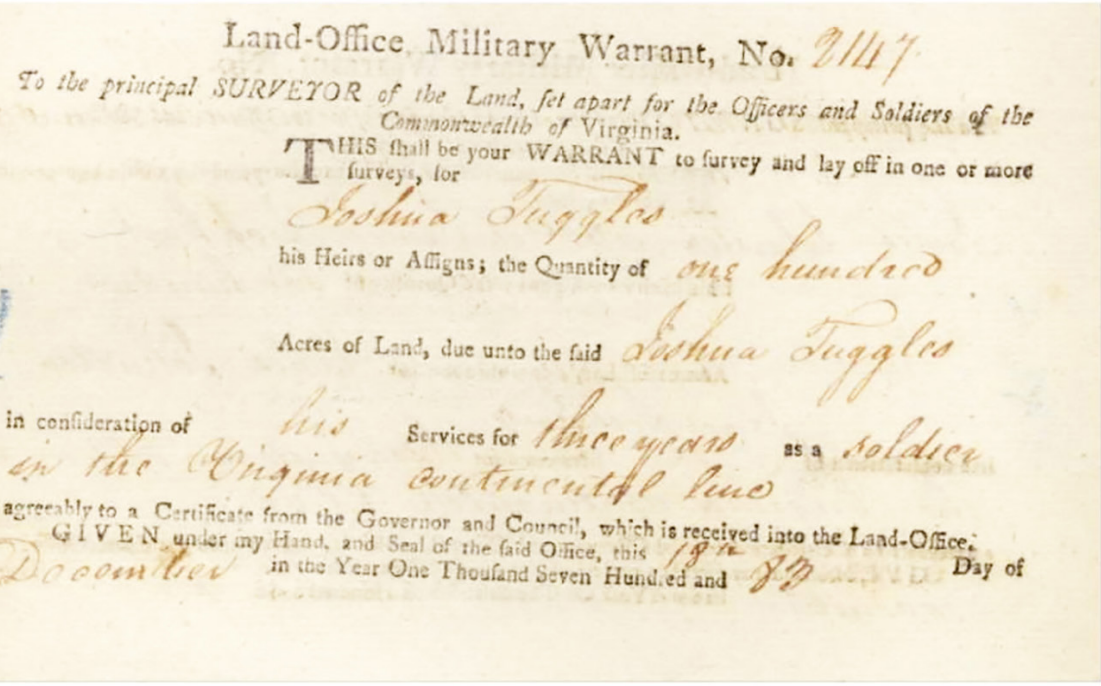 Land-Office Military Warrant, No. 2147
To the principal SURVEYOR of the Land, ſet apart for the Officers and Soldiers of the
Commonwealth of Virginia.
THIS ſhall be your WARRANT to ſurvey and lay off in one or more
ſurveys, for
Joshua Tuggles
his Heirs or Aſſigns; the Quantity of one hundred
Acres of Land, due unto the ſaid Joshua Tuggles
in conſideration of his Services for three years as a soldier
in the Virginia continental line
agreeably to a Certificate from the Governor and Council, which is received into the Land-Office.
GIVEN under my Hand, and Seal of the ſaid Office, this 18th Day of
December in the Year One Thouſand Seven Hundred and 83